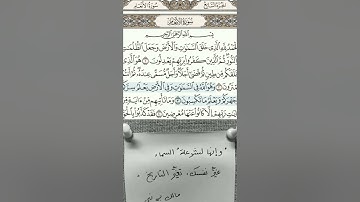 الجزء السابع سورة الأنعام
سورة الأنعام
بسم الله الرحمن الرحيم
لحمد لله الذي خلق السموت والأرض وجعل الظلمت
لنور ثم الذين كفروا بربهم يعدلون ١ هو الذي
لقكم من طين ثم قضى أجلا وأجل مسمى عنده ثم
مترون ٢ وهو الله في السموت وفي الأرض يعلم سرك
جهركم ويعلم ما تكسبون ٣ وما تأتيهم من ءاية
ربهم إلا كانوا عنها معرضين ٤ فقد كذبوا بالح
وإنها السماء
غير نفسك، تغير التاريخ
مالك بن نبي